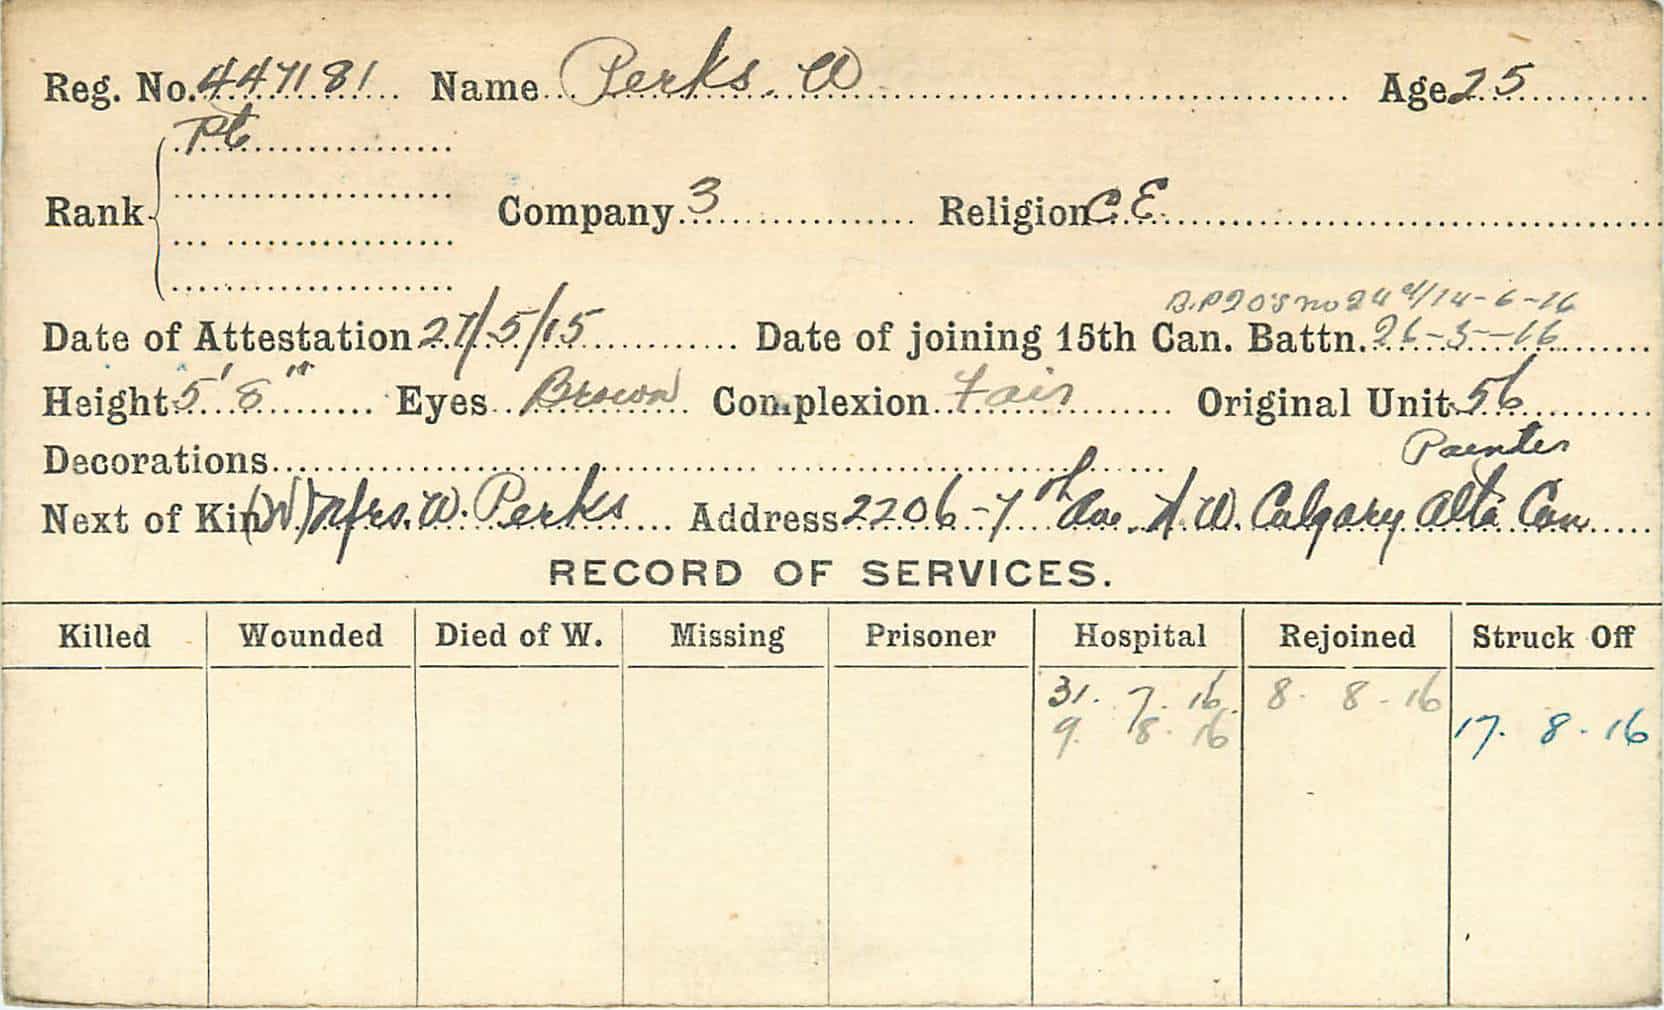 Reg. No. 447181 Name Perks. W Age 25
Pte
Rank Company 3 Religion C.E.
14-6-16
Date of Attestation 27/5/15 Date of joining 15th Can. Battn. 26-5-16
Height 5' 8" Eyes Brown Complexion Fair Original Unit 56
Decorations Painter
Next of Kin (W) Mrs. W. Perks Address 2206-7th Ave. N.W. Calgary Alta Can
RECORD OF SERVICES.
Killed Wounded Died of W. Missing Prisoner Hospital Rejoined Struck Off
31. 7. 16. 8. 8-16
9. 8. 16 17. 8. 16